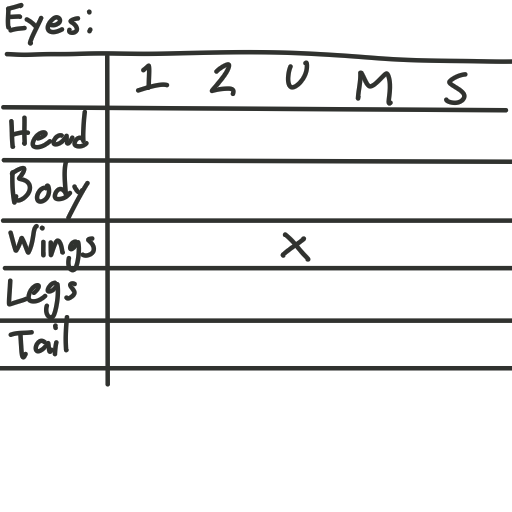 Eyes:
1 2 U M S
Head
Body
Wings X
Legs
Tail